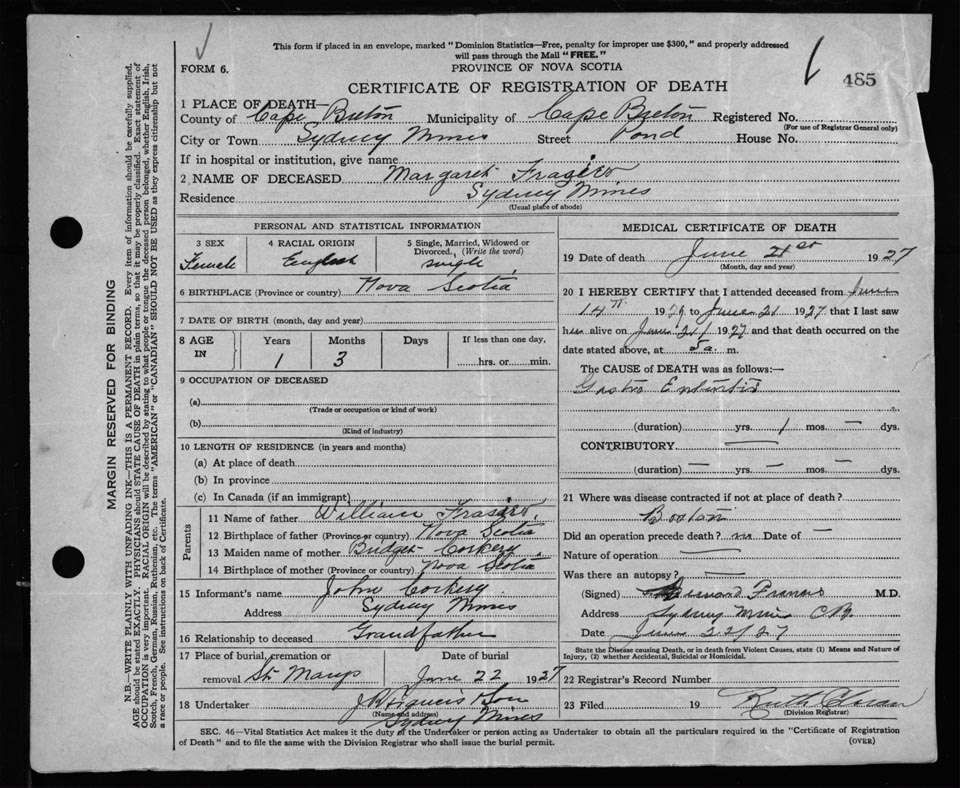 This form if placed in an envelope, marked "Dominion Statistics—Free, penalty for improper use $300," and properly addressed
will pass through the Mail "FREE."
FORM 6.
PROVINCE OF NOVA SCOTIA
485
CERTIFICATE OF REGISTRATION OF DEATH
1 PLACE OF DEATH—
County of Cape Breton Municipality of Cape Breton Registered No.
(For use of Registrar General only)
City or Town Sydney Mines Street Pond House No.
If in hospital or institution, give name
2 NAME OF DECEASED Margaret Frasier
Residence Sydney Mines
(Usual place of abode)
PERSONAL AND STATISTICAL INFORMATION
3 SEX 4 RACIAL ORIGIN 5 Single, Married, Widowed or
Divorced, (Write the word)
Female English single
6 BIRTHPLACE (Province or country) Nova Scotia
7 DATE OF BIRTH (month, day and year)
8 AGE IN Years Months Days If less than one day,
1 3 hrs. or min.
9 OCCUPATION OF DECEASED
(a)
(Trade or occupation or kind of work)
(b)
(Kind of industry)
10 LENGTH OF RESIDENCE (in years and months)
(a) At place of death
(b) In province
(c) In Canada (if an immigrant)
Parents
11 Name of father William Frasier
12 Birthplace of father (Province or country) Nova Scotia
13 Maiden name of mother Bridget Corkery
14 Birthplace of mother (Province or country) Nova Scotia
15 Informant's name John Corkery
Address Sydney Mines
16 Relationship to deceased Grandfather
17 Place of burial, cremation or Date of burial
removal St. Marys June 22 1927
18 Undertaker & Son
(Name and address)
Sydney Mines
MEDICAL CERTIFICATE OF DEATH
19 Date of death June 21st 1927
(Month, day and year)
20 I HEREBY CERTIFY that I attended deceased from June
14th 192 to June 21 1927 that I last saw
him alive on June 21 1927 and that death occurred on
date stated above, at 5 a. m.
The CAUSE of DEATH was as follows:—
Gastro Enteritis
(duration) yrs. 1 mos. — dys.
CONTRIBUTORY —
(duration) — yrs. — mos. — dys.
21 Where was disease contracted if not at place of death?
Did an operation precede death? no Date of —
Nature of operation —
Was there an autopsy? —
(Signed) Francis M.D.
Address Sydney Mines CB
Date June 22/27
State the Disease causing Death, or in death from Violent Causes, state (1) Means and Nature of
Injury, (2) whether Accidental, Suicidal or Homicidal.
22 Registrar's Record Number
23 Filed 19 Ruth
(Division Registrar)
SEC. 46—Vital Statistics Act makes it the duty of the Undertaker or person acting as Undertaker to obtain all the particulars required in the "Certificate of Registration
of Death" and to file the same with the Division Registrar who shall issue the burial permit.
(OVER)
MARGIN RESERVED FOR BINDING
N.B.—WRITE PLAINLY WITH UNFADING INK—THIS IS A PERMANENT RECORD. Every item of information should be carefully supplied.
AGE should be stated EXACTLY. PHYSICIANS should STATE CAUSE OF DEATH in plain terms, so that it may be properly classified. Exact statement of
OCCUPATION is very important. RACIAL ORIGIN will be described by stating to what people or tongue the deceased person belonged, whether English, Irish,
Scotch, French, German, Russian, Ruthenian, etc. The terms "AMERICAN" or "CANADIAN" SHOULD NOT BE USED as they express citizenship but not
a race or people. See instructions on back of Certificate.